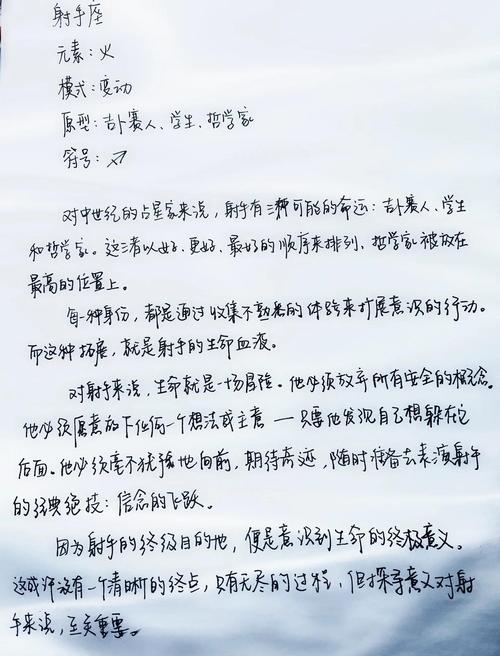 射手座
元素：火
模式：变动
原型：吉卜赛人、学生、哲学家
符号：♐
对中世纪的占星家来说，射手有三种可能的命运：吉卜赛人、学生
和哲学家。这三者以好、更好、最好的顺序来排列，哲学家被放在
最高的位置上。
每一种身份，都是通过收集不熟悉的体验来扩展意识的行动。
而这种拓展，就是射手的生命血液。
对射手来说，生命就是一场冒险。他必须放弃所有安全的概念。
他必须愿意放下任何一个想法或主意——只要他发现自己想躲在它
后面。他必须毫不犹豫地向前，期待奇迹，随时准备去表演射手
的经典绝技：信念的飞跃。
因为射手的终级目的地，便是意识到生命的终极意义。
这或许没有一个清晰的终点，只有无尽的过程，但探寻意义对射
手来说，至关重要。